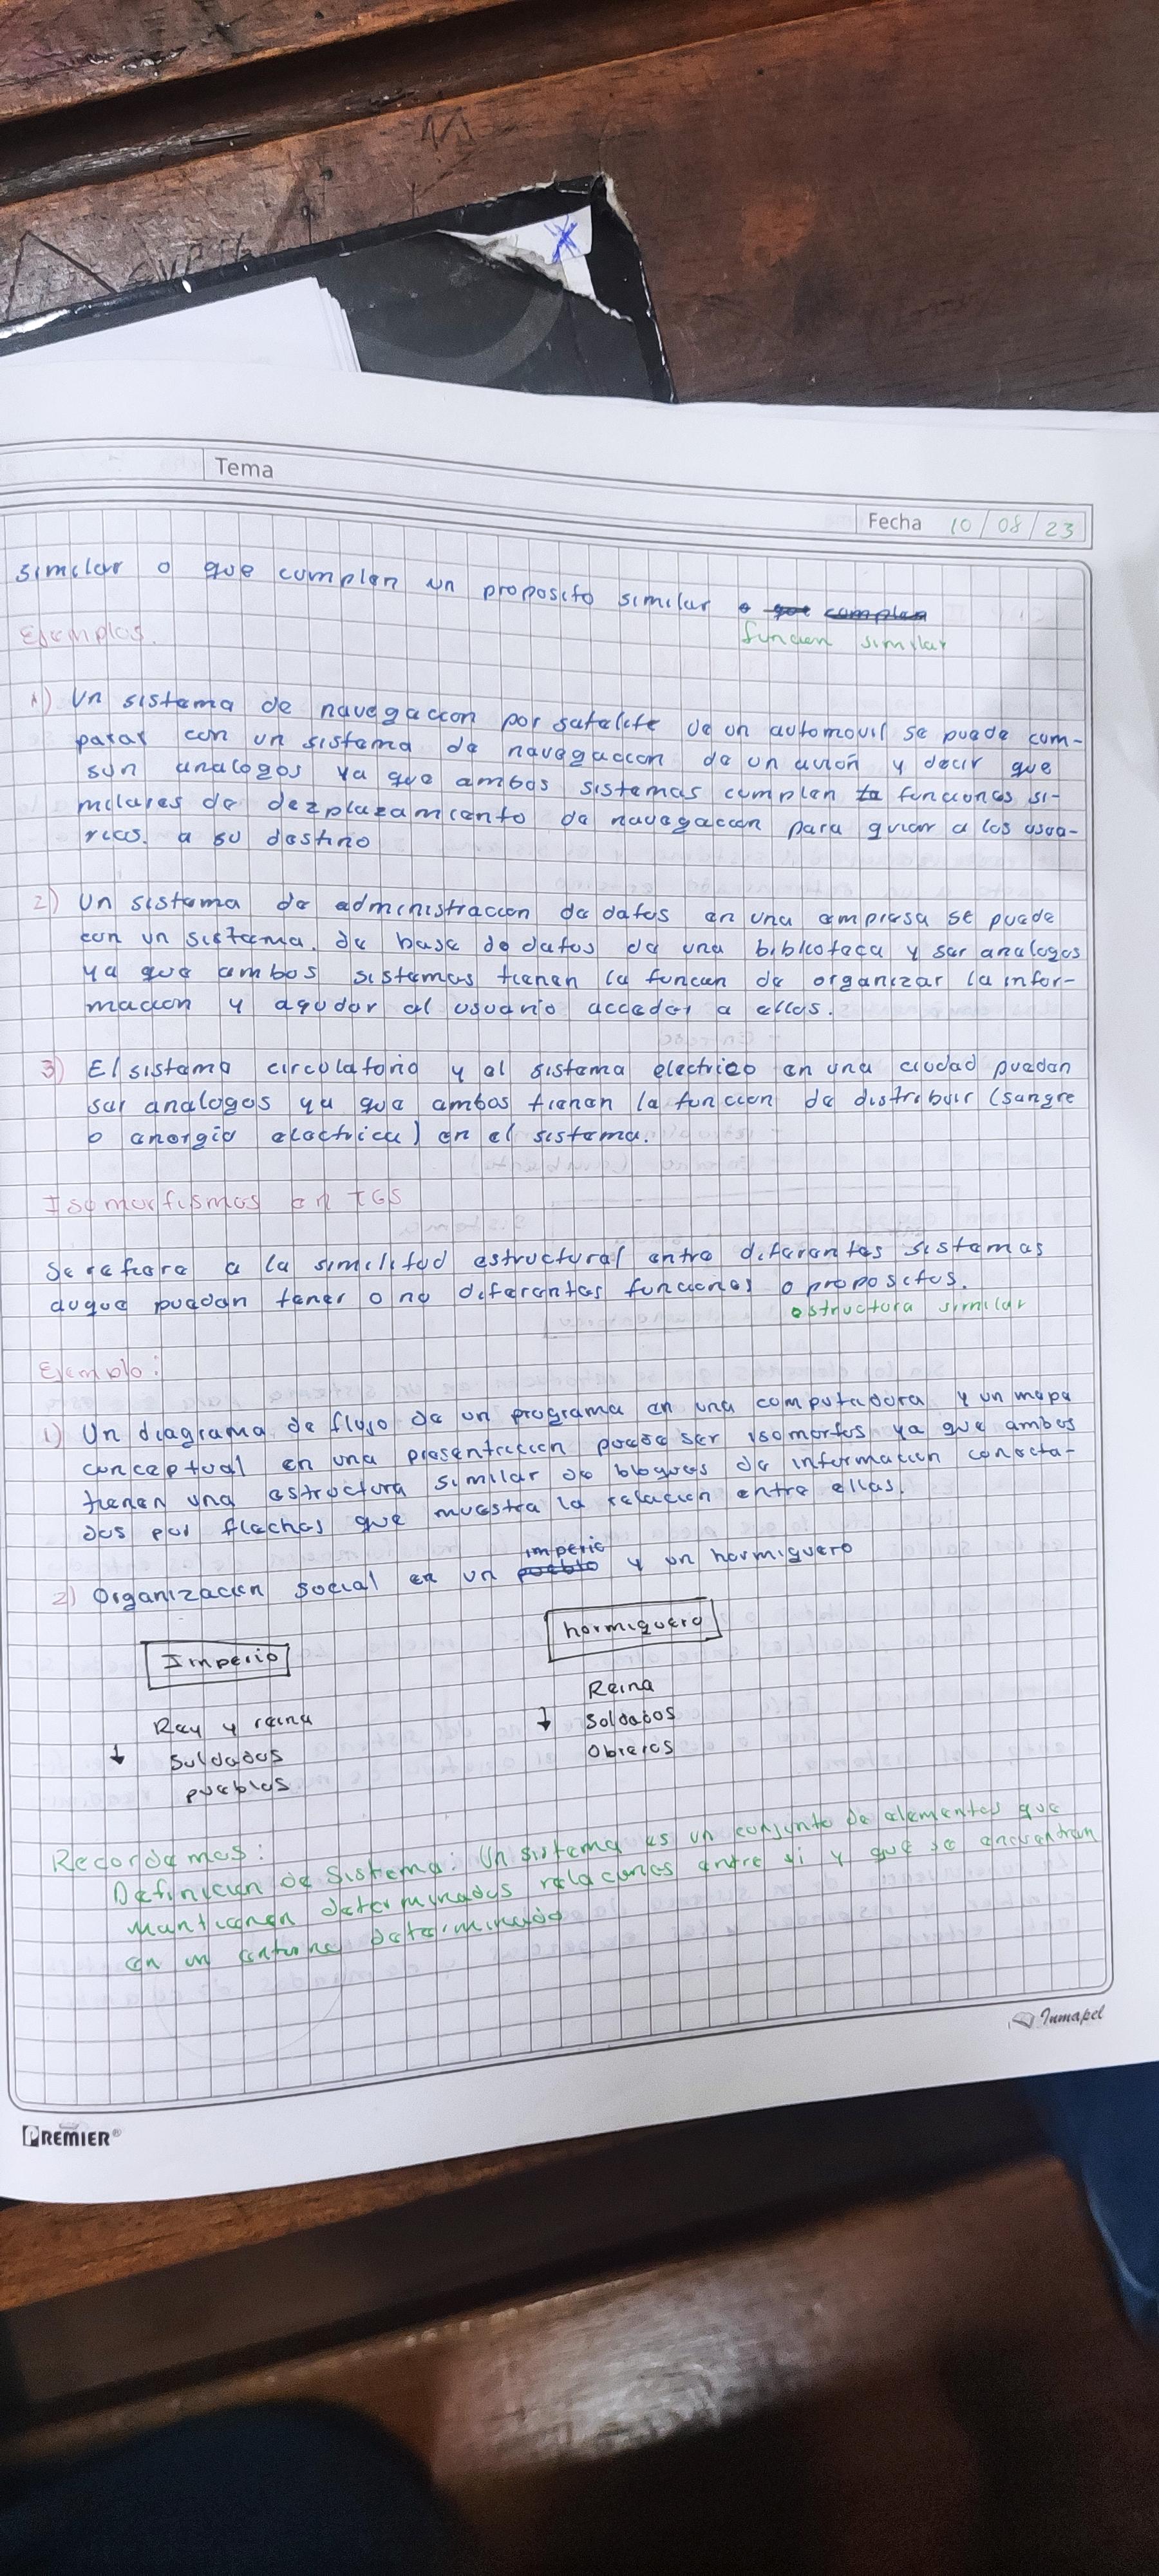 Tema
Fecha 10/08/23
similar o que cumplen un proposito similar o que cumplen
funcion similar
Ejemplos.
1) Un sistema de navegaccion por satelite de un automovil se puede com-
parar con un sistema de navegaccion de un avion y decir que
son analogos ya que ambos sistemas cumplen la funciones si-
milares de dezplazamiento de navegacion para guiar a los usua-
rios. a su destino
2) Un sistema de administraccion de datos en una empresa se puede
con un sistema. de base de datos de una biblioteca y ser analogos
ya que ambos sistemas tienen la funcion de organizar la infor-
macion y aqudar al usuario acceder a ellos.
3) El sistema circolatorio y el sistema electrico en una ciudad pueden
ser analogos ya que ambos tienen la funccion de distribuir (sangre
o energia electrica) en el sistema.
Isomorfismos en TGS
Se refiere a la similitud estructural entre diferentes sistemas
auque puedan tener o no diferentes funciones o propositos.
estructura similar
Ejemplo:
1) Un diagrama de flujo de un programa en una computadora y un mapa
conceptual en una presentaccion puede ser isomorfos ya que ambos
tienen una estructura similar de bloques de informacion conecta-
dos por flechas que muestra la relacion entre ellas.
imperio
2) Organizacion social en un pueblo y un hormiguero
Imperio
hormiguero
Rey y reina
↓ Soldados
pueblos
Reina
↓ Soldados
Obreros
Recordemos:
Definicion de Sistema: Un sistema es un conjunto de elementos que
mantienen determinados relaciones entre si y que se encuentran
en un entorno determinado
Inmapel
PREMIER®